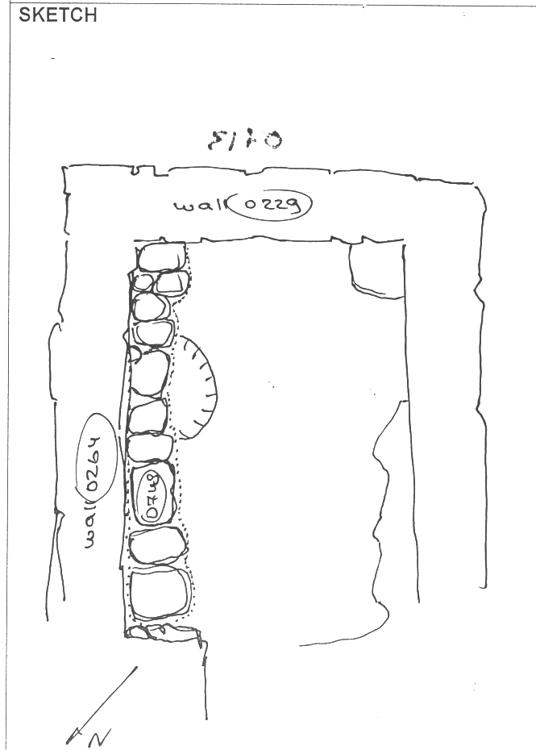 SKETCH
wall 0229
wall 0264
0748
N